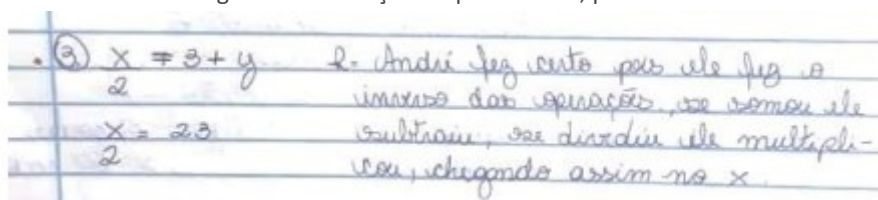 3) x/2 = 3 + y
R- André fez certo pois ele fez o
inverso das operações, se somou ele
x/2 = 23
subtraiu, se dividiu ele multipli-
cou, chegando assim no x.